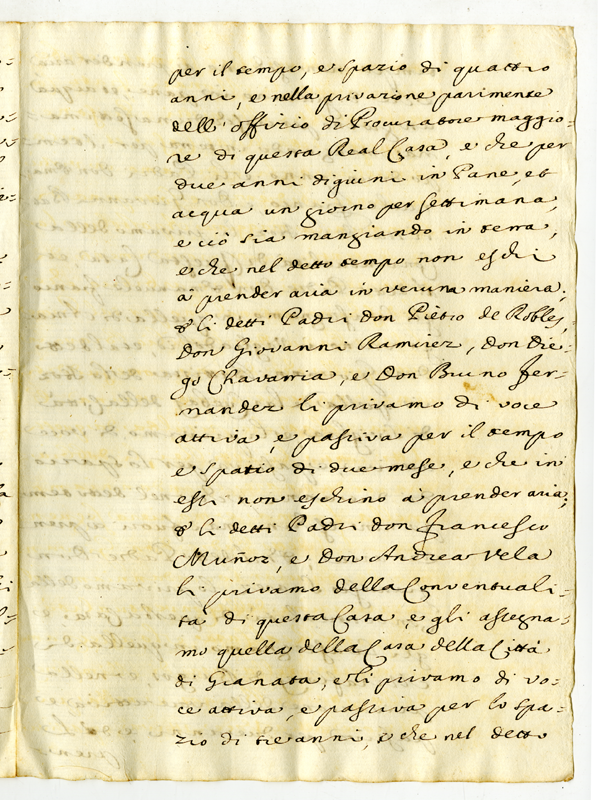 per il tempo, e spazio di quattro
anni, e nella privazione parimente
dell' offizio di Procuratore maggio=
re di questa Real Casa, e che per
due anni digiuni in Pane, et
acqua un giorno per settimana,
e ciò sia mangiando in terra,
e che nel detto tempo non eschi
à prender aria in veruna maniera;
& li detti Padri Don Pietro de Robles,
Don Giovanni Ramirez, Don Die=
go Chavarria, e Don Bruno Fer=
nandez li privamo di voce
attiva, e passiva per il tempo
e spatio di due mese, e che in
essi non eschino à prender aria;
& li detti Padri Don Francesco
Muñoz, e Don Andrea Vela
li privamo della Conventuali=
tà di questa Casa, e gli assegna=
mo quella della Casa della Città
di Granata, e li privamo di vo=
ce attiva, e passiva per lo spa=
zio di tre anni, e che nel detto